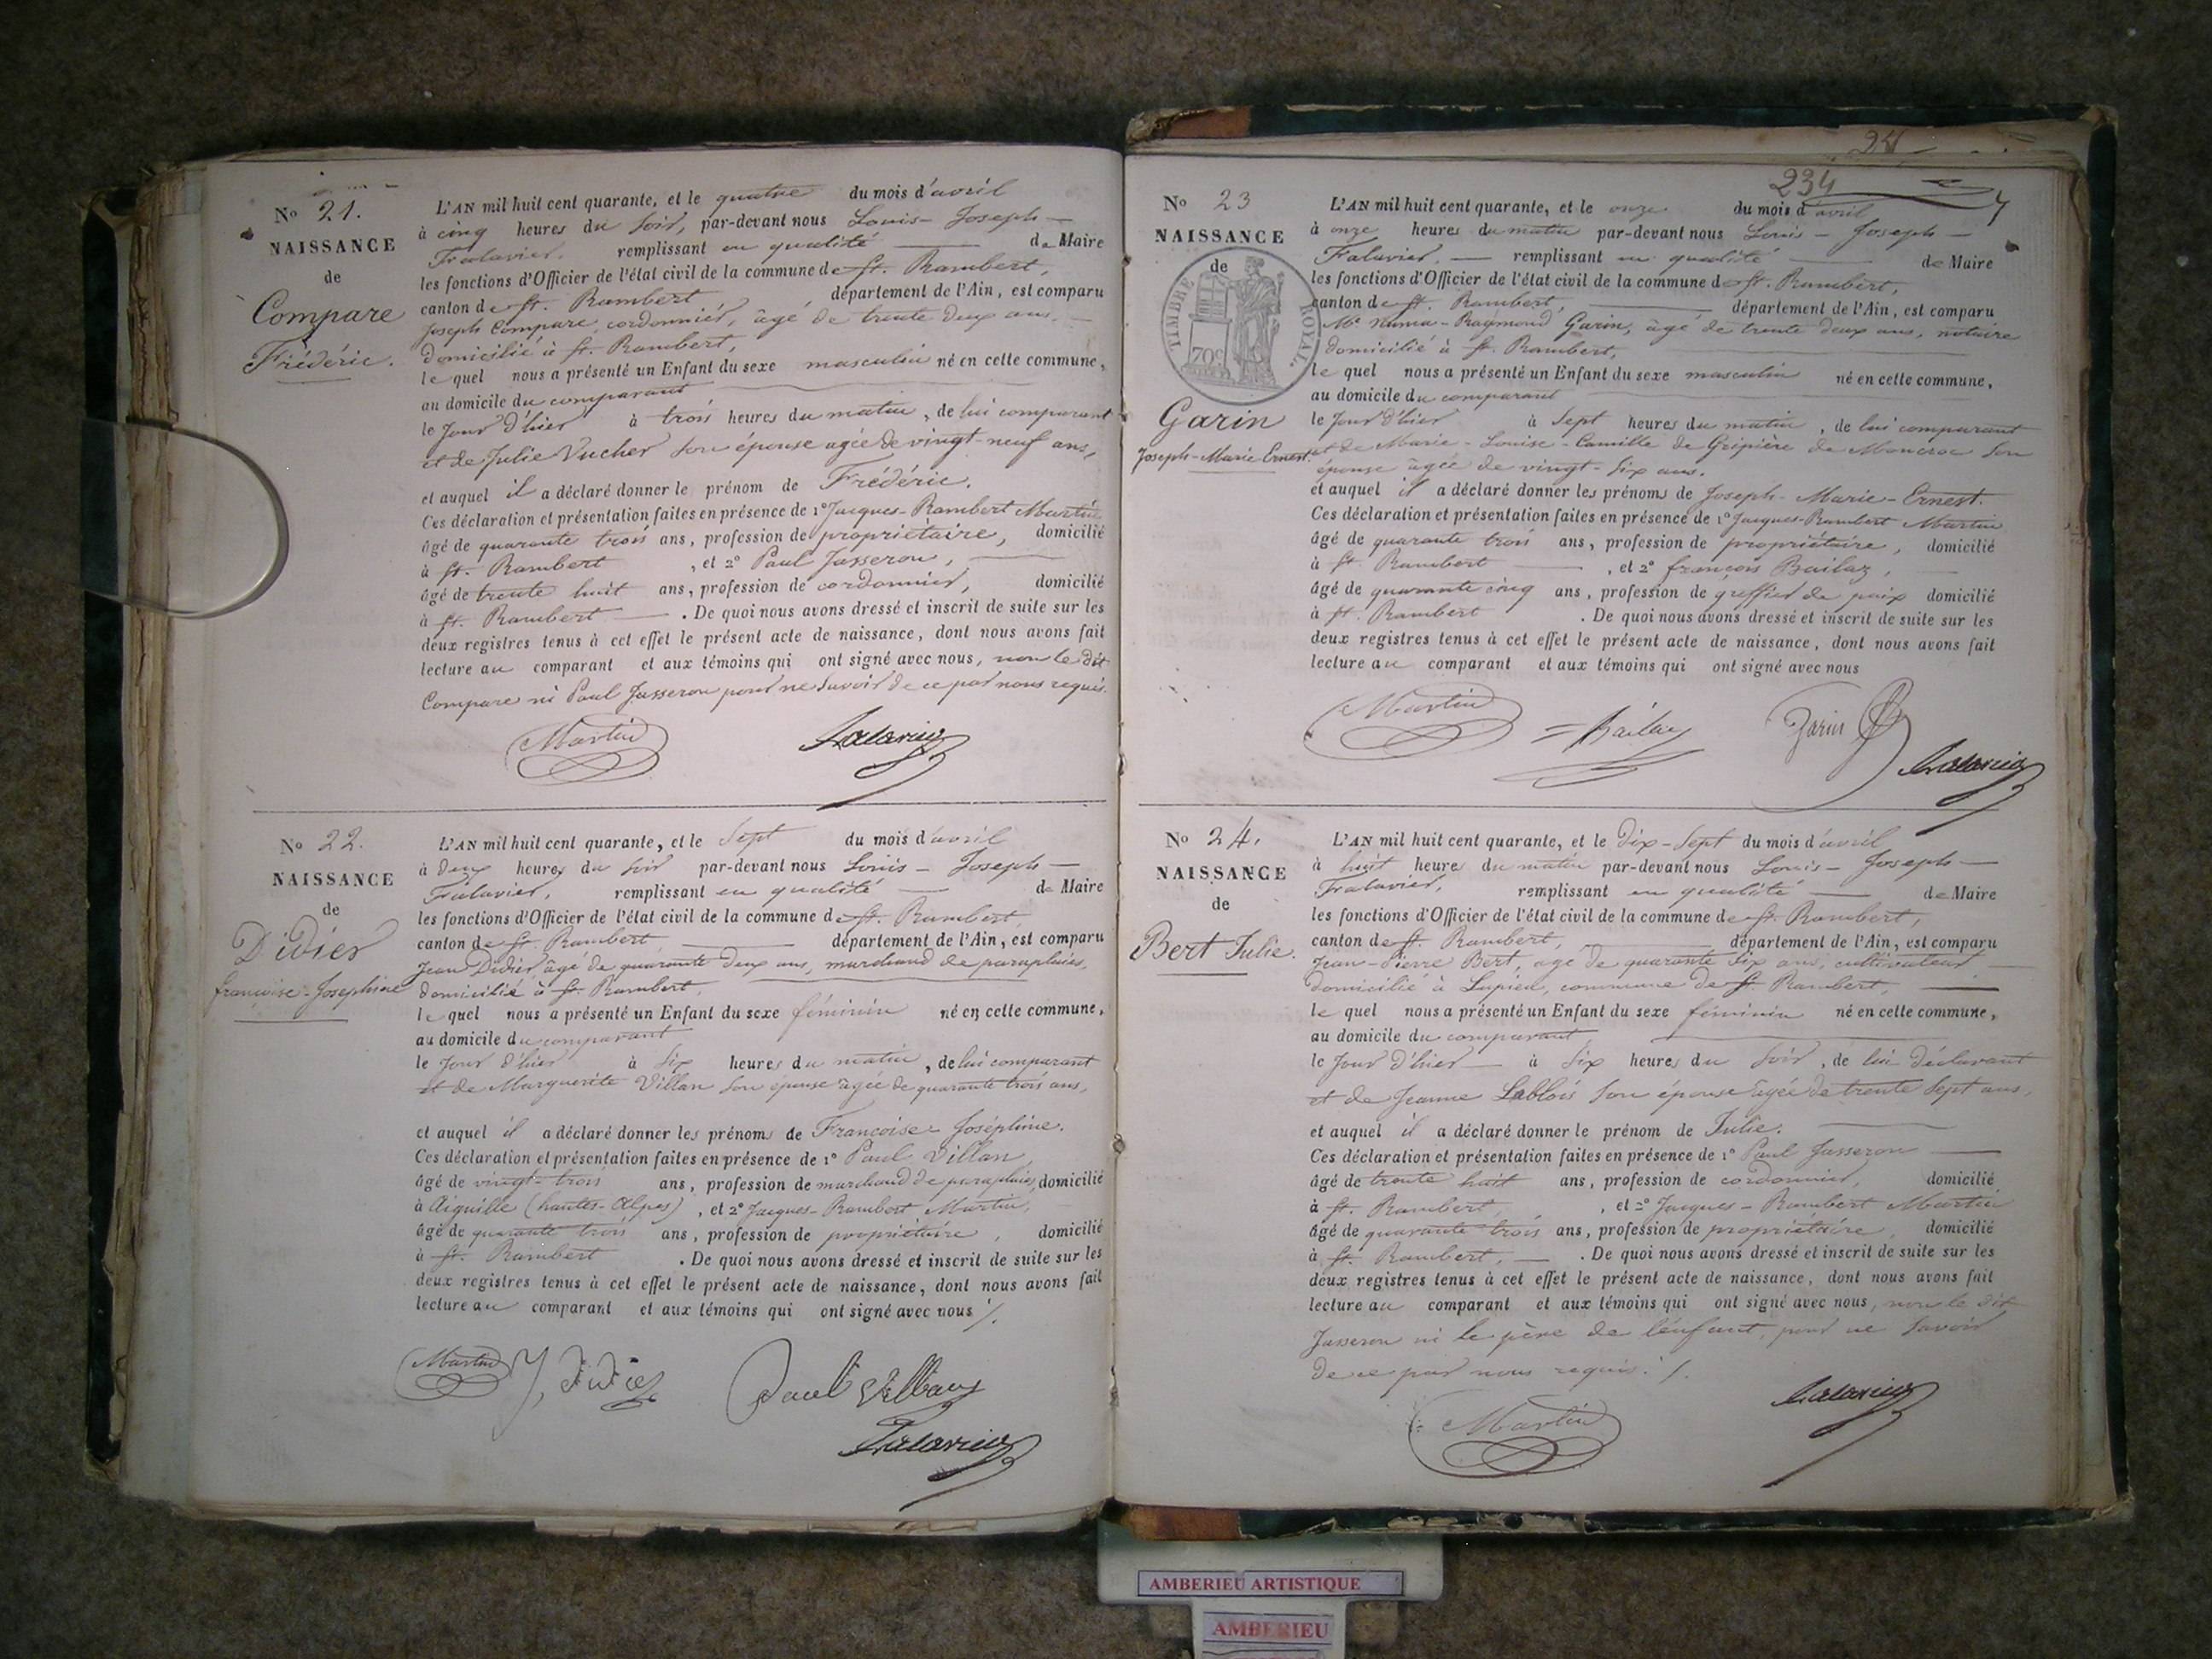 No 21.
NAISSANCE
de
Compare
Frédéric.
L'AN mil huit cent quarante, et le quatre du mois d'avril
à cinq heures du soir, par-devant nous Louis-Joseph
Falavier, remplissant en qualité de Maire
les fonctions d'Officier de l'état civil de la commune de St. Rambert,
canton de St. Rambert département de l'Ain, est comparu
Joseph Compare, cordonnier, âgé de trente deux ans
domicilié à St. Rambert,
lequel nous a présenté un Enfant du sexe masculin né en cette commune,
au domicile du comparant
le jour d'hier à trois heures du matin, de lui comparant
et de Julie Vucher son épouse agée de vingt-neuf ans,
et auquel il a déclaré donner le prénom de Frédéric.
Ces déclaration et présentation faites en présence de 1º Jacques-Rambert Martin
âgé de quarante trois ans, profession de propriétaire, domicilié
à St. Rambert, et 2º Paul Jasseron,
âgé de trente huit ans, profession de cordonnier, domicilié
à St. Rambert. De quoi nous avons dressé et inscrit de suite sur les
deux registres tenus à cet effet le présent acte de naissance, dont nous avons fait
lecture au comparant et aux témoins qui ont signé avec nous, non le dit
Compare ni Paul Jasseron pour ne savoir de ce par nous requis.
Martin Falavier
No 22.
NAISSANCE
de
Didier
françoise-Josephine
L'AN mil huit cent quarante, et le sept du mois d'avril
à deux heures du soir par-devant nous Louis-Joseph
Falavier, remplissant en qualité de Maire
les fonctions d'Officier de l'état civil de la commune de St. Rambert
canton de St. Rambert département de l'Ain, est comparu
Jean Didier, âgé de quarante deux ans, marchand de parapluies,
domicilié à St. Rambert,
lequel nous a présenté un Enfant du sexe féminin né en cette commune,
au domicile du comparant
le jour d'hier à six heures du matin, de lui comparant
et de Marguerite Villan son épouse âgée de quarante trois ans,
et auquel il a déclaré donner les prénoms de Françoise-Joséphine.
Ces déclaration et présentation faites en présence de 1º Paul Villan
âgé de vingt-trois ans, profession de marchand de parapluies, domicilié
à Aiguille (hautes-Alpes), et 2º Jacques-Rambert Martin,
âgé de quarante trois ans, profession de propriétaire, domicilié
à St. Rambert. De quoi nous avons dressé et inscrit de suite sur les
deux registres tenus à cet effet le présent acte de naissance, dont nous avons fait
lecture au comparant et aux témoins qui ont signé avec nous /.
Martin J, Didier Paul Villan
Falavier
24
234
No 23
NAISSANCE
de
TIMBRE ROYAL.
70c
Garin
Joseph-Marie Ernest.
L'AN mil huit cent quarante, et le onze du mois d'avril
à onze heures du matin par-devant nous Louis-Joseph
Falavier, remplissant en qualité de Maire
les fonctions d'Officier de l'état civil de la commune de St. Rambert,
canton de St. Rambert, département de l'Ain, est comparu
Me Numa-Raymond Garin, âgé de trente deux ans, notaire
domicilié à St. Rambert,
lequel nous a présenté un Enfant du sexe masculin né en cette commune,
au domicile du comparant
le jour d'hier à sept heures du matin, de lui comparant
et de Marie-Louise-Camille de Gripière de Moncroc son
épouse âgée de vingt-six ans.
et auquel il a déclaré donner les prénoms de Joseph-Marie-Ernest.
Ces déclaration et présentation faites en présence de 1º Jacques-Rambert Martin
âgé de quarante trois ans, profession de propriétaire, domicilié
à St. Rambert, et 2º françois Bailaz,
âgé de quarante cinq ans, profession de greffier de paix domicilié
à St. Rambert. De quoi nous avons dressé et inscrit de suite sur les
deux registres tenus à cet effet le présent acte de naissance, dont nous avons fait
lecture au comparant et aux témoins qui ont signé avec nous
Martin Bailaz Garin
Falavier
No 24.
NAISSANCE
de
Bert Julie.
L'AN mil huit cent quarante, et le dix-sept du mois d'avril
à huit heures du matin par-devant nous Louis-Joseph
Falavier, remplissant en qualité de Maire
les fonctions d'Officier de l'état civil de la commune de St. Rambert,
canton de St. Rambert, département de l'Ain, est comparu
Jean-Pierre Bert, âgé de quarante six ans, cultivateur
domicilié à Lupieu, commune de St. Rambert,
lequel nous a présenté un Enfant du sexe féminin né en cette commune,
au domicile du comparant
le jour d'hier à six heures du soir, de lui déclarant
et de Jeanne Lablois son épouse âgée de trente sept ans,
et auquel il a déclaré donner le prénom de Julie.
Ces déclaration et présentation faites en présence de 1º Paul Jasseron
âgé de trente huit ans, profession de cordonnier, domicilié
à St. Rambert, et 2º Jacques-Rambert Martin
âgé de quarante trois ans, profession de propriétaire, domicilié
à St. Rambert. De quoi nous avons dressé et inscrit de suite sur les
deux registres tenus à cet effet le présent acte de naissance, dont nous avons fait
lecture au comparant et aux témoins qui ont signé avec nous, non le dit
Jasseron ni le père de l'enfant, pour ne savoir
de ce par nous requis. /.
Martin Falavier
AMBERIEU ARTISTIQUE
AMBERIEU